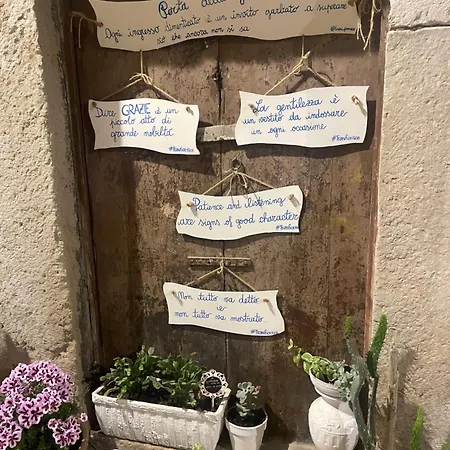 Porta della
Ogni ingresso dimenticato è un invito garbato a superare
ciò che ancora non si sa
Dire GRAZIE è un
piccolo atto di
grande nobiltà
La gentilezza è
un vestito da indossare
in ogni occasione
Patience and listening
are signs of good character
Non tutto va detto
e
non tutto va mostrato